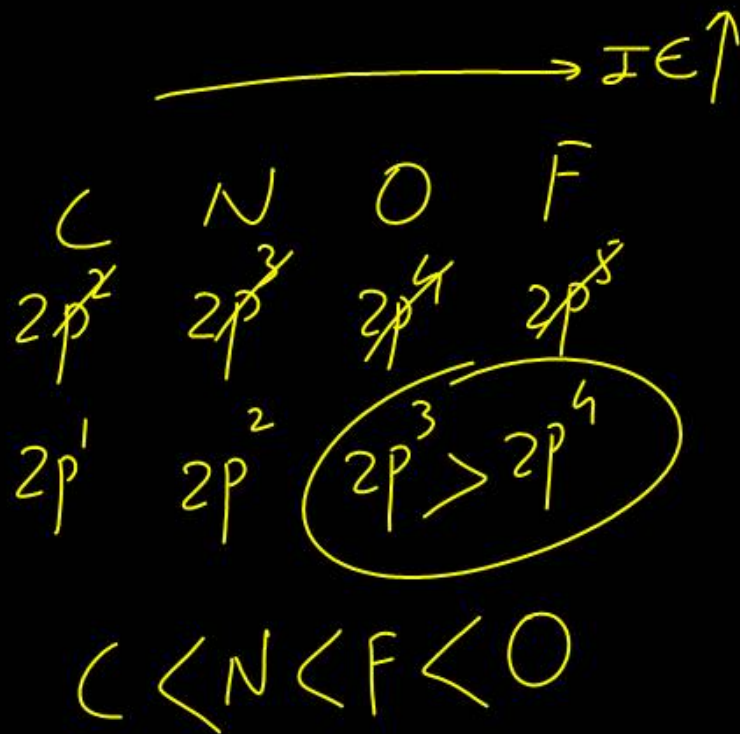 → IE↑
C N O F
2p² 2p³ 2p⁴ 2p⁵
2p¹ 2p² 2p³ > 2p⁴
C < N < F < O